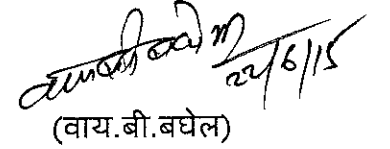 22/6/15
(वाय.बी.बघेल)